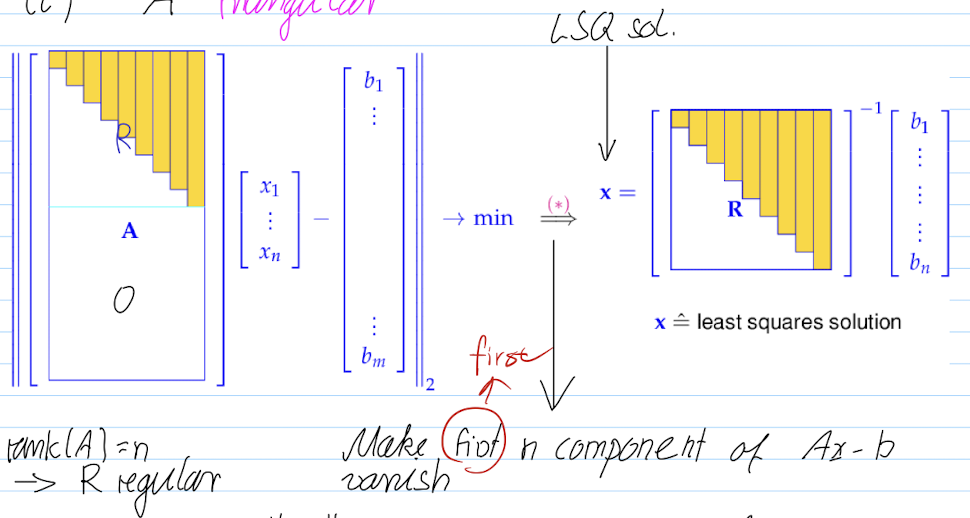 (i) A triangular
LSQ sol.
‖[R A O] [x₁ ⋮ xₙ] − [b₁ ⋮ ⋮ bₘ]‖₂ → min (∗) ⟹ x = [R]⁻¹ [b₁ ⋮ ⋮ ⋮ bₙ]
x ≙ least squares solution
first
rank(A)=n Make fiot n component of Ax-b
→ R regular vanish